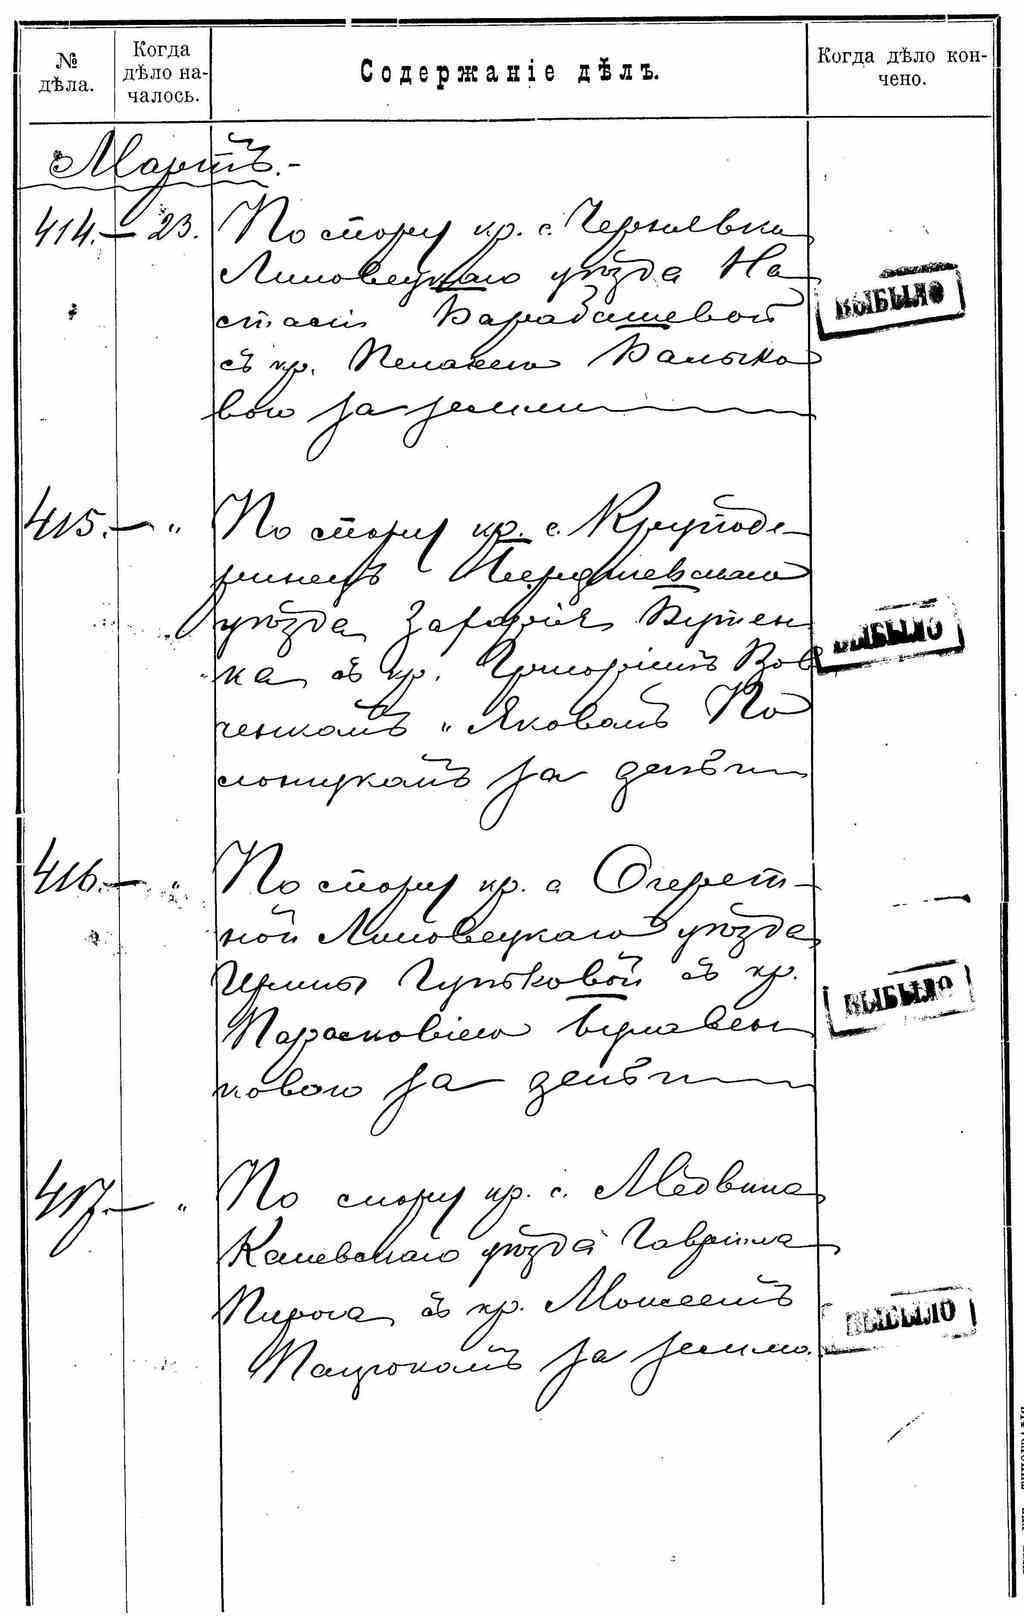 № дѣла.
Когда дѣло на-
чалось.
Содержаніе дѣлъ.
Когда дѣло кон-
чено.
Мартъ.-
414.— 23. По спору кр. с. Чернявки
Липовецкаго уѣзда На
стасіи Барабашевой
съ кр. Пелагею Балыко
вою за землю
ВЫБЫЛО
415.— " По спору кр. с. Круподе-
ринецъ Бердичевскаго
уѣзда Захарія Бутен
ка съ кр. Григоріемъ Вов
ченкомъ и Яковомъ По
лонукомъ за деньги
ВЫБЫЛО
416.— " По спору кр. с. Очерет-
ной Липовецкаго уѣзда
Ирины съ кр.
Парасковіею
ковою за деньги
ВЫБЫЛО
417.— " По спору кр. с. Медвина
Каневскаго уѣзда Гаврила
Пирога съ кр. Моисеемъ
Пацюкомъ за землю.
ВЫБЫЛО